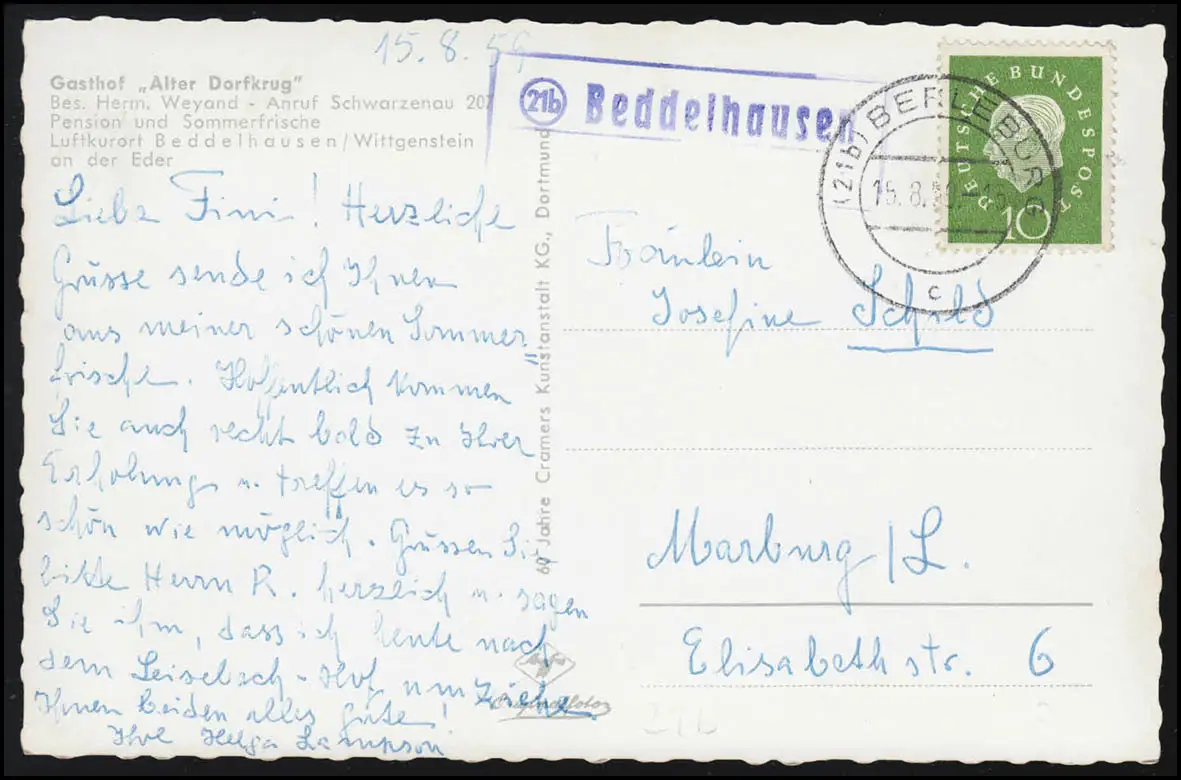 15.8.59
Gasthof „Alter Dorfkrug"
Bes. Herm. Weyand - Anruf Schwarzenau 207
Pension und Sommerfrische
Luftkurort Beddelhausen/Wittgenstein
an der Eder
21b Beddelhausen
(21b) BERLEBURG
15.8.59.-16
c
DEUTSCHE BUNDESPOST
10
Liebe Fini! Herzliche
Grüsse sende ich Ihnen
aus meiner schönen Sommer=
frische. Hoffentlich kommen
Sie auch recht bald zu Ihrer
Erholung u. treffen es so
schön wie möglich. Grüssen Sie
bitte Herrn R. herzlich u. sagen
Sie ihm, dass ich heute nach
dem Leisebach-Hof umziehe.
Ihnen beiden alles gute!
Ihre Helga Lampson
60 Jahre Cramers Kunstanstalt KG., Dortmund
Fräulein
Josefine Schild
Marburg/L.
Elisabethstr. 6